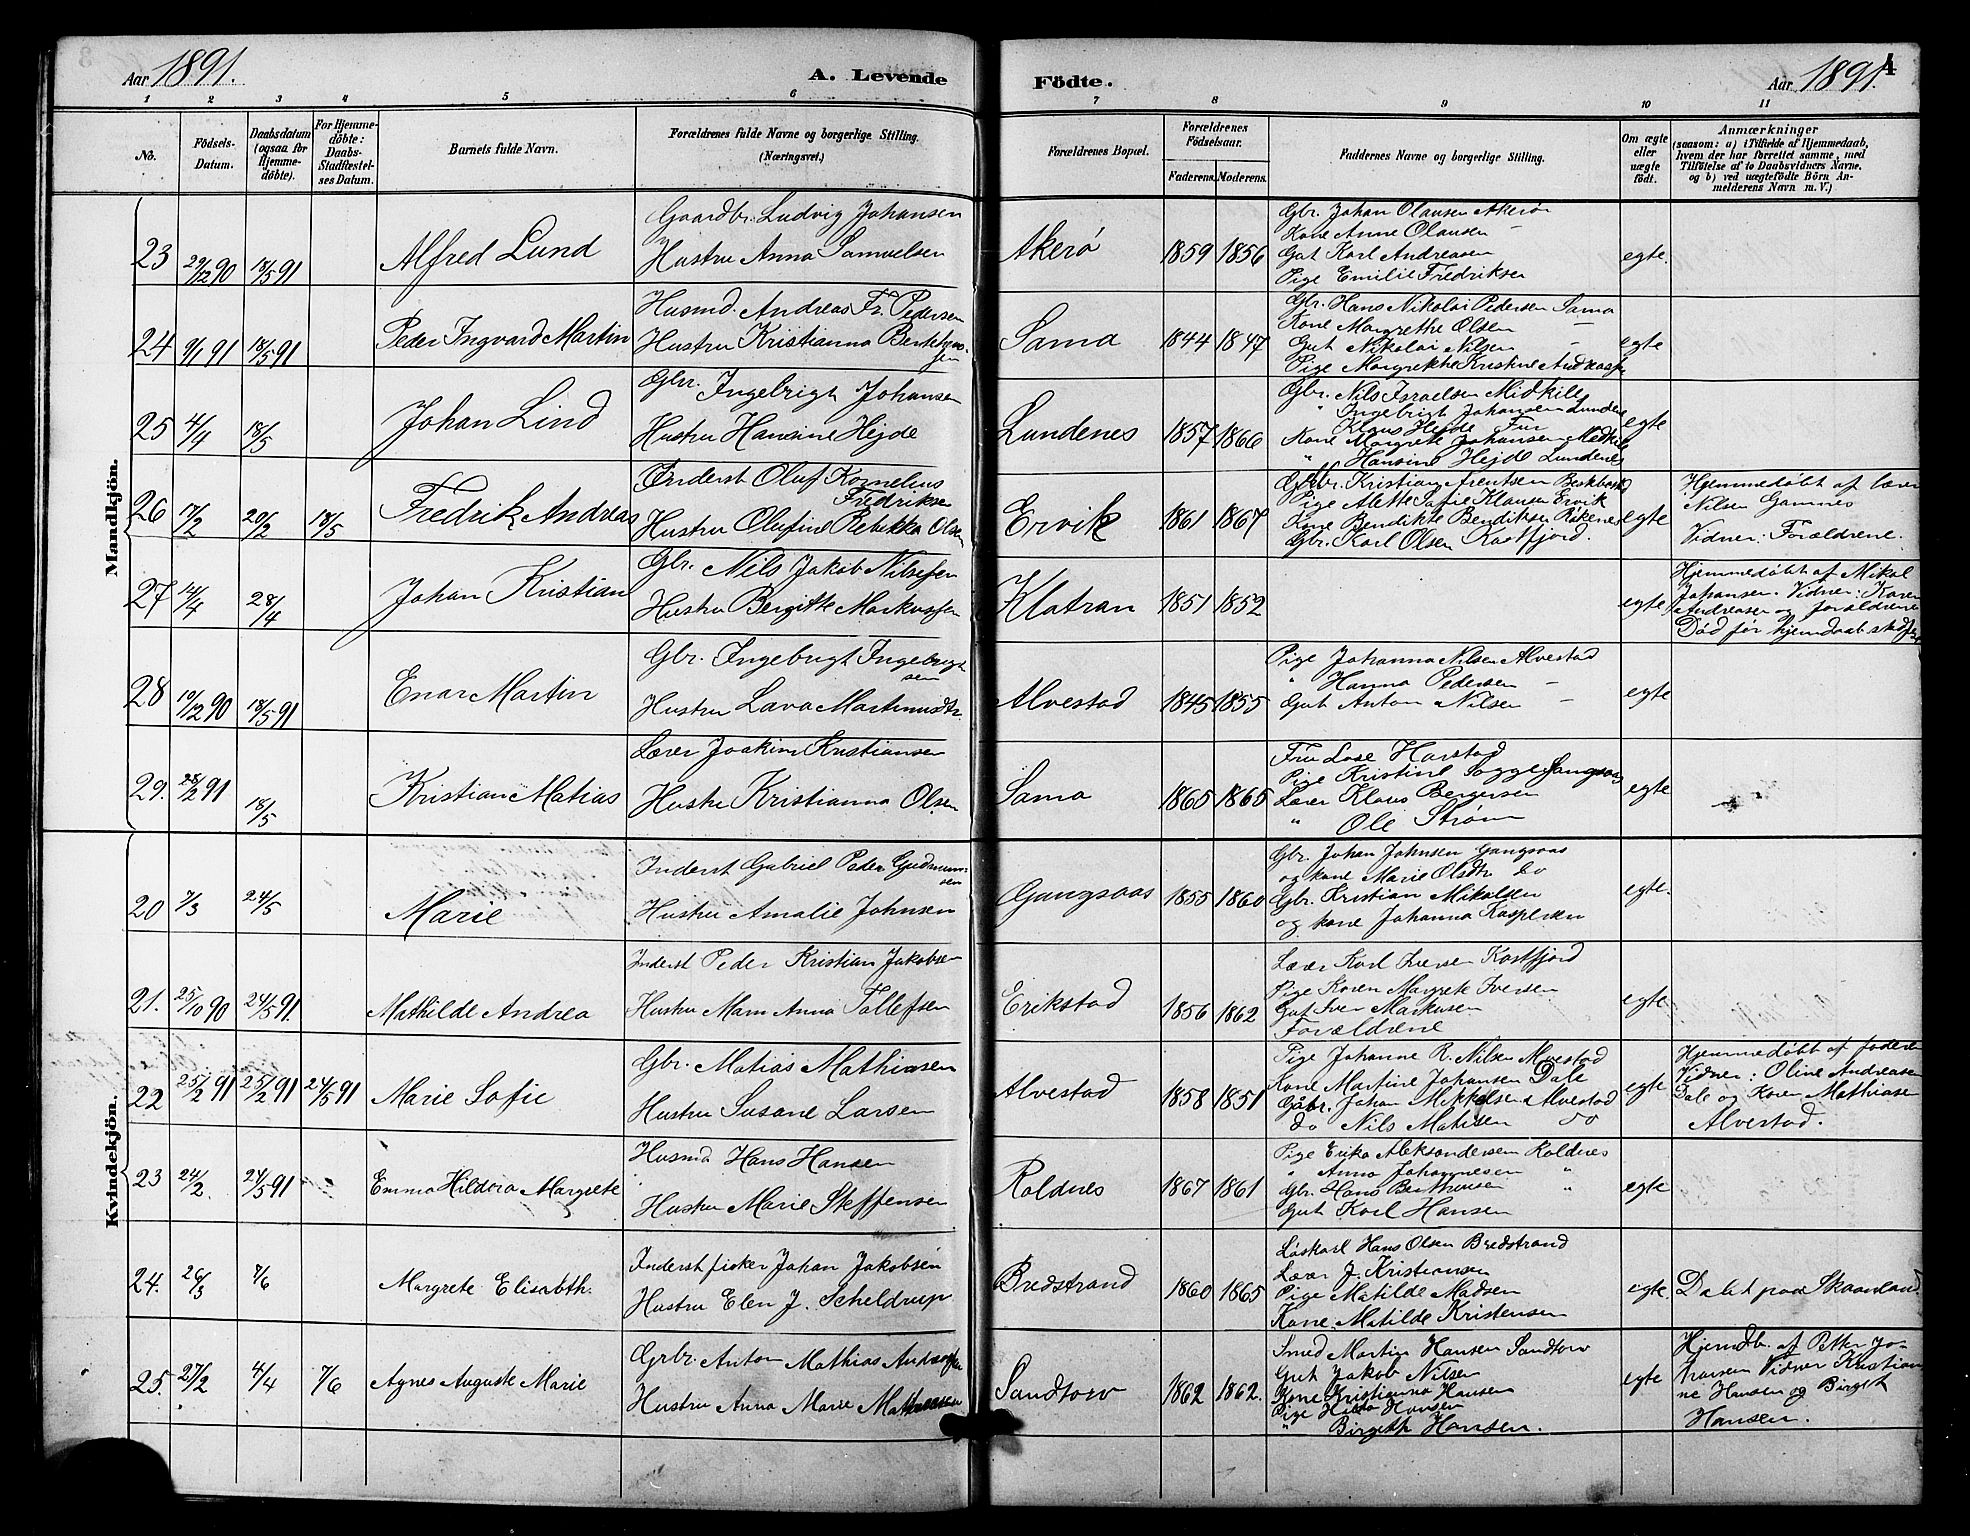 Aar 1891.
A. Levende
Födte.
Aar 1891.
4
1 2 3 4 5 6 7 8 9 10 11
No.
Födsels-Datum.
Daabsdatum (ogsaa for Hjemme-döbte).
For Hjemme-döbte: Daabs-Stadfæstel-ses Datum.
Barnets fulde Navn.
Forældrenes fulde Navne og borgerlige Stilling.
(Næringsvei.)
Forældrenes Bopæl.
Forældrenes Födselsaar.
Faderens. Moderens.
Faddernes Navne og borgerlig Stilling.
Om ægte eller uægte födt.
Anmærkninger
(saasom: a) i Tilfælde af Hjemmedaab, hvem der har forrettet samme, med Tilföielse af to Daabsvidners Navne, og b) ved uægtefödte Börn An-melderens Navn m. V.)
Mandkjön.
23 29/12 90 18/5 91 Alfred Lund
Gaardbr. Ludvig Johansen
Hustru Anna Samuelsen
Akerö 1859 1856
Gbr. Johan Olausen Akerö
Kone Anne Olausen –
Gut Karl Andreasen
Pige Emilie Fredriksen
egte.
24 9/1 91 18/5 91 Peder Ingvard Martin
Husmd. Andreas Fr. Pedersen
Hustru Kristianna
Sama 1844 1847
Gbr. Hans Nikolai Pedersen Sama
Kone Margrethe Olsen –
Gut Nikolai Nilsen –
Pige Margrethe Kristine
egte
25 4/4 18/5 Johan Lind
Gbr. Ingebrigt Johansen
Hustru Hansine Hejde
Lundenes 1857 1866
Gbr. Nils Israelsen Midkile
" Ingebrigt Johansen Lundenes
Klaus Hejde
Kone Margrete Johansen
" Hansine Hejde Lundenes
egte
26 17/2 20/2 18/5 Fredrik Andreas
Inderst Oluf Kornelius
Fredriksen
Hustru Olufine Rebekka Olsen
Ervik 1861 1867
Gbr. Kristian Arentsen
Pige Alette Sofie Klausen Ervik
Kone Bendikte Bendiksen Rökenes
Gbr. Karl Olsen Kastfjord.
egte
Hjemmedöbt af lærer
Nilsen Gamnes
Vidner: Forældrene.
27 14/4 28/4 Johan Kristian
Gbr. Nils Jakob Nilssen
Hustru Bergitte Markussen
Klatran 1851 1852
egte
Hjemmedöbt af Mikal
Johansen. Vidner: Karen
Andreasen og forældrene
Död för hjemdaab
28 10/12 90 18/5 91 Enar Martin
Gbr. Ingebrigt Ingebrigt
sen
Hustru Lava Martinusdtr.
Alvestad 1845 1855
Pige Johanna Nilsen Alvestad
" Hanna Pedersen –
Gut Anton Nilsen –
egte
29. 28/2 91 18/5 Kristian Matias
Lærer Joakim Kristiansen
Hustru Kristianna Olsen
Sama 1865 1865
Fru Lose Harstad
Pige Kristine Sagge Gangsaas
Lærer Klaus Bergersen
" Ole Ström
egte
Kvindekjön.
20 7/3 24/5 Marie
Inderst Gabriel Peder Gudmun-
sen
Hustru Amalie Johnsen
Gangsaas 1855 1860
Gbr. Johan Johnsen Gangsaas
og kone Marie Olsdtr do
Gbr. Kristian Mikalsen
og kone Johanna Kaspersen
egte.
21. 25/10 90 24/5 91. Mathilde Andrea
Inderst Peder Kristian Jakobsen
Hustru Marn Anna Tollefsen
Erikstad 1856 1862
Lærer Karl Iversen Kastfjord
Pige Karen Margrete Iversen
Gut Iver Markusen
Forældrene
egte
22 25/2 91 25/2 91 24/5 91 Marie Sofie
Gbr. Matias Mathiasen
Hustru Susane Larsen
Alvestad 1858 1851
Pige Johanne R. Nilsen Alvestad
Kone Martine Johansen Dale
Gåbr. Johan Mikkelsen Alvestad
do Nils Matisen do
egte
Hjemmedöbt af faderen
Vidner: Oline Andreasen
Dale og Karen Mathiasen
Alvestad.
23 24/2. 24/5 91 Emma Hildora Margrete
Husmd Hans Hansen
Hustru Marie Steffensen
Roldnes 1867 1861
Pige Erika Aleksandersen Roldnes
Anna Johannesen "
Gbr. Hans Bertheusen "
Gut Karl Hansen
egte
24. 26/3 7/6 Margrete Elisabth.
Inderst fisker Johan Jakobsen
Hustru Elen J. Scheldrup
Bredstrand 1860 1865
Löskarl Hans Olsen Bredstrand
Lærer J. Kristiansen
Pige Matilde Madsen
Kone Matilde Kristensen
egte.
Döbt paa Skaanland
25. 27/2 4/4 7/6 Agnes Auguste Marie
Grbr. Anton Mathias Andreassen
Hustru Anna Marie
Sandtorv 1862 1862.
Smed Martin Hansen Sandtorv
Gut Jakob Nilsen
Kone Kristianna Hansen
Pige Hilda Hansen
" Birgeth Hansen.
egte
Hjemdb. af Petter Jo-
hansen Vidner Kristian-
ne Hansen og Birget
Hansen.